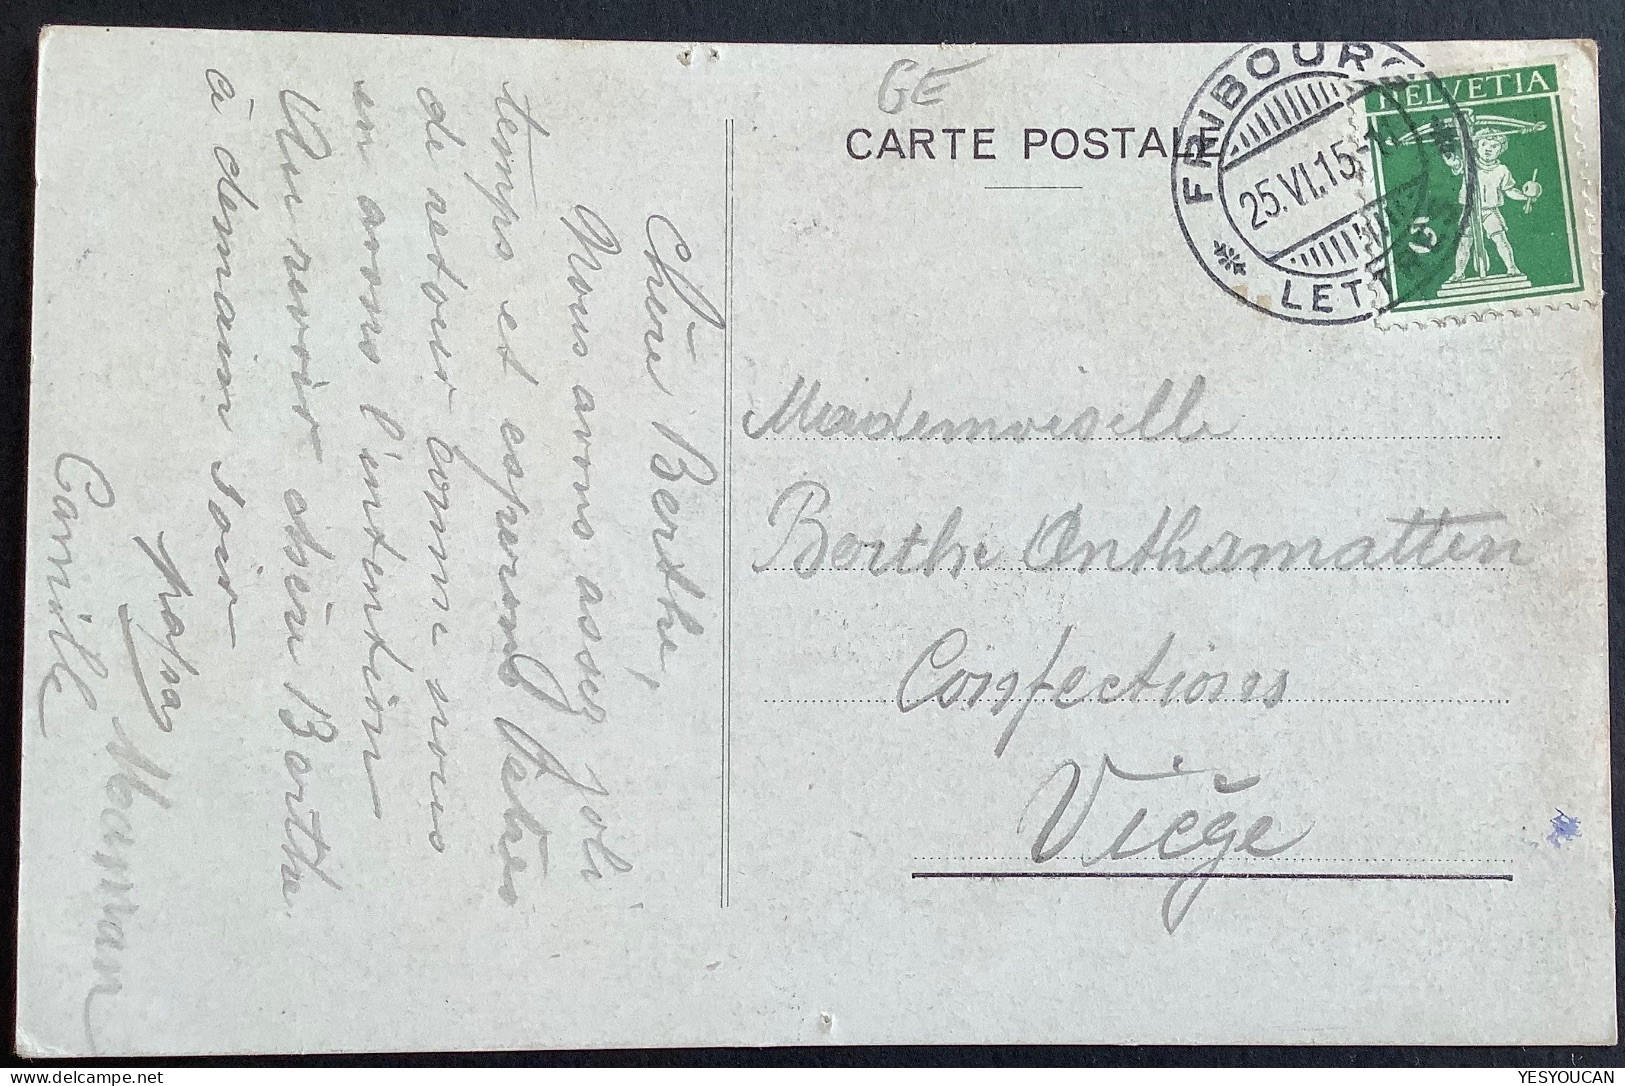 GE
CARTE POSTALE
FRIBOURG
25.VI.15.-1
LETTRES
HELVETIA
5
Chère Berthe,
Nous avons assez joli
temps et esperons d'etres
de retour comme nous
en avons l'intention
Au revoir chère Berthe
à demain soir
Papa Maman
Camille
Mademoiselle
Berthe Anthamatten
Confections
Viège
YESYOUCAN